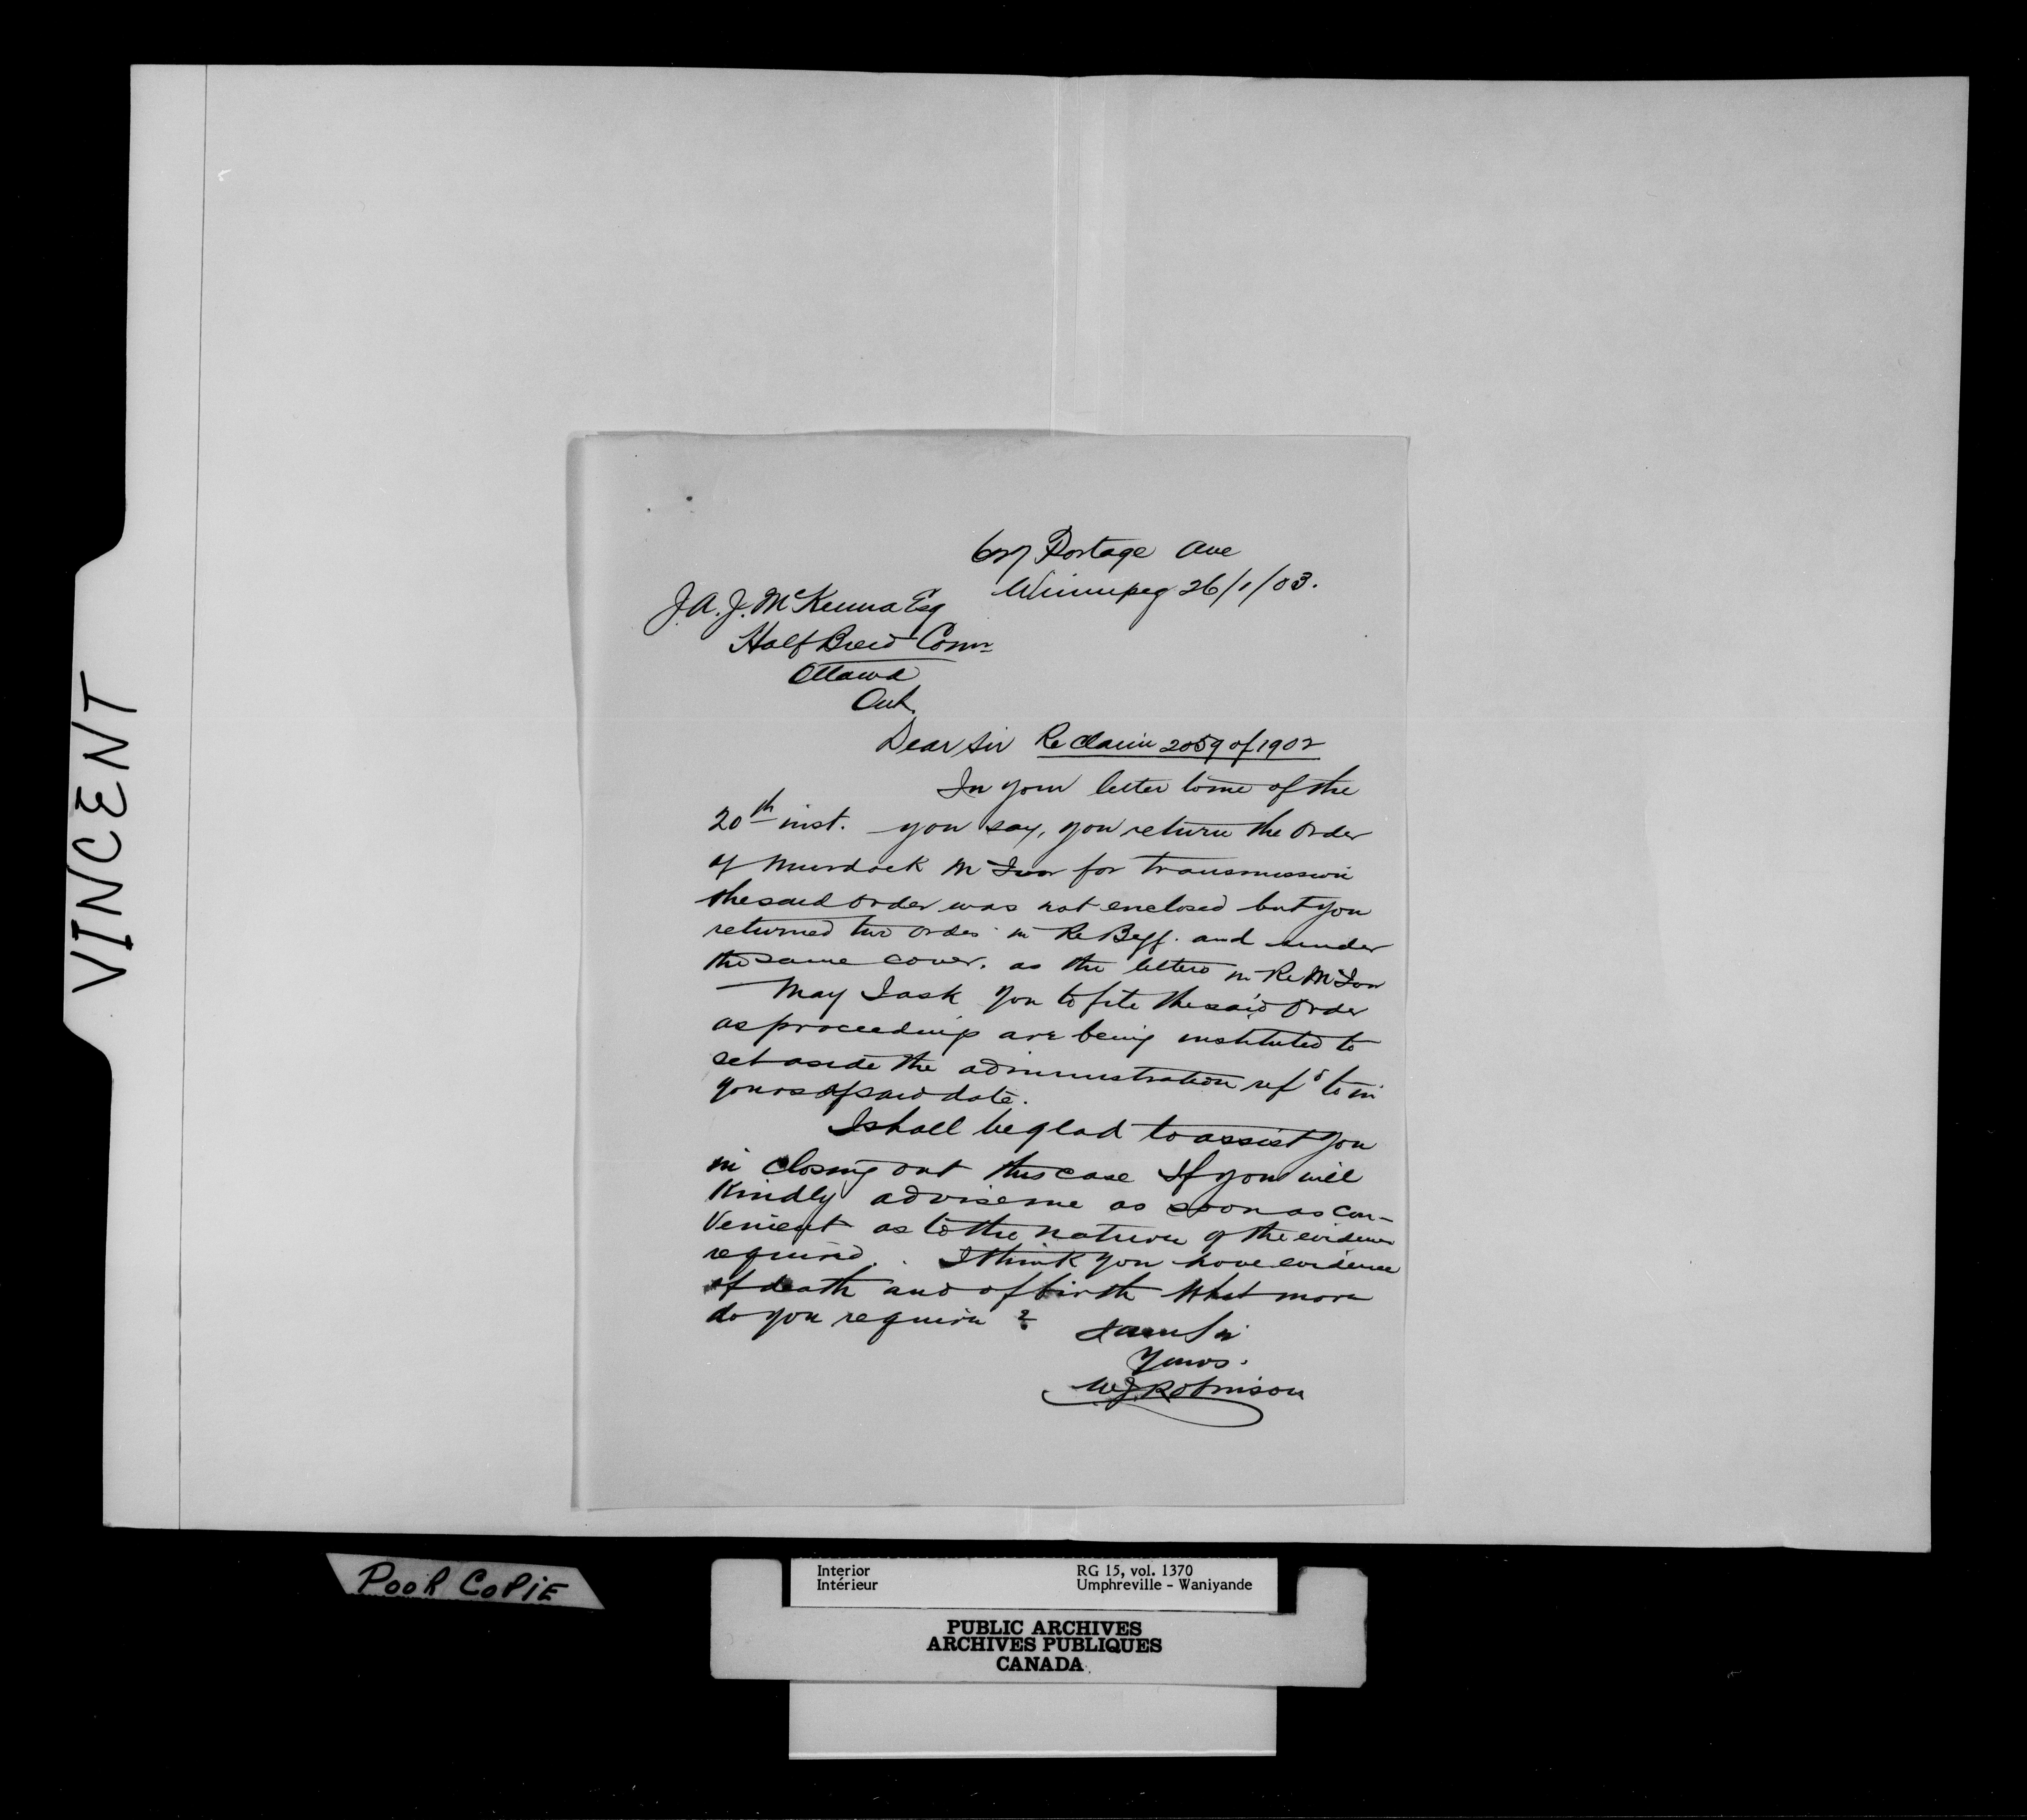 Portage Ave
Winnipeg 26/1/03.
J.A.J. McKenna Esq
Half Breed Comr
Ottawa
Ont.
Dear Sir Re Claim 2059 of 1902
In your letter to me of the
20th inst. you say, you return the Order
of Murdock for transmission
the said order was not enclosed but you
returned two orders in Re Begg. and under
the same cover. as the letters in Re
May I ask you to file the said Order
as proceedings are being instituted to
set aside the administration refd to in
yours of said date.
I shall be glad to assist you
in closing out this case If you will
Kindly advise me as soon as con-
venient as to the nature of the evidence
required. I think you have evidence
of death and of birth What more
do you require ?
I am Sir
Yours.
W J Robinson
VINCENT
POOR COPIE
Interior RG 15, vol. 1370
Intérieur Umphreville - Waniyande
PUBLIC ARCHIVES
ARCHIVES PUBLIQUES
CANADA